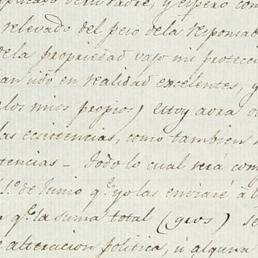 padre, y espero con
relevado del peso dela responsab
dela propriedad vajo mi protecci
an sido en realidad excelentes, y
los mios propios) Estoy aora o
las existencias, como tambien
tencias - Todo lo cual será com
1.º de Junio q.e yo las enviaré á
q.e la suma total (gros) se
alteracion politica, ú alguna